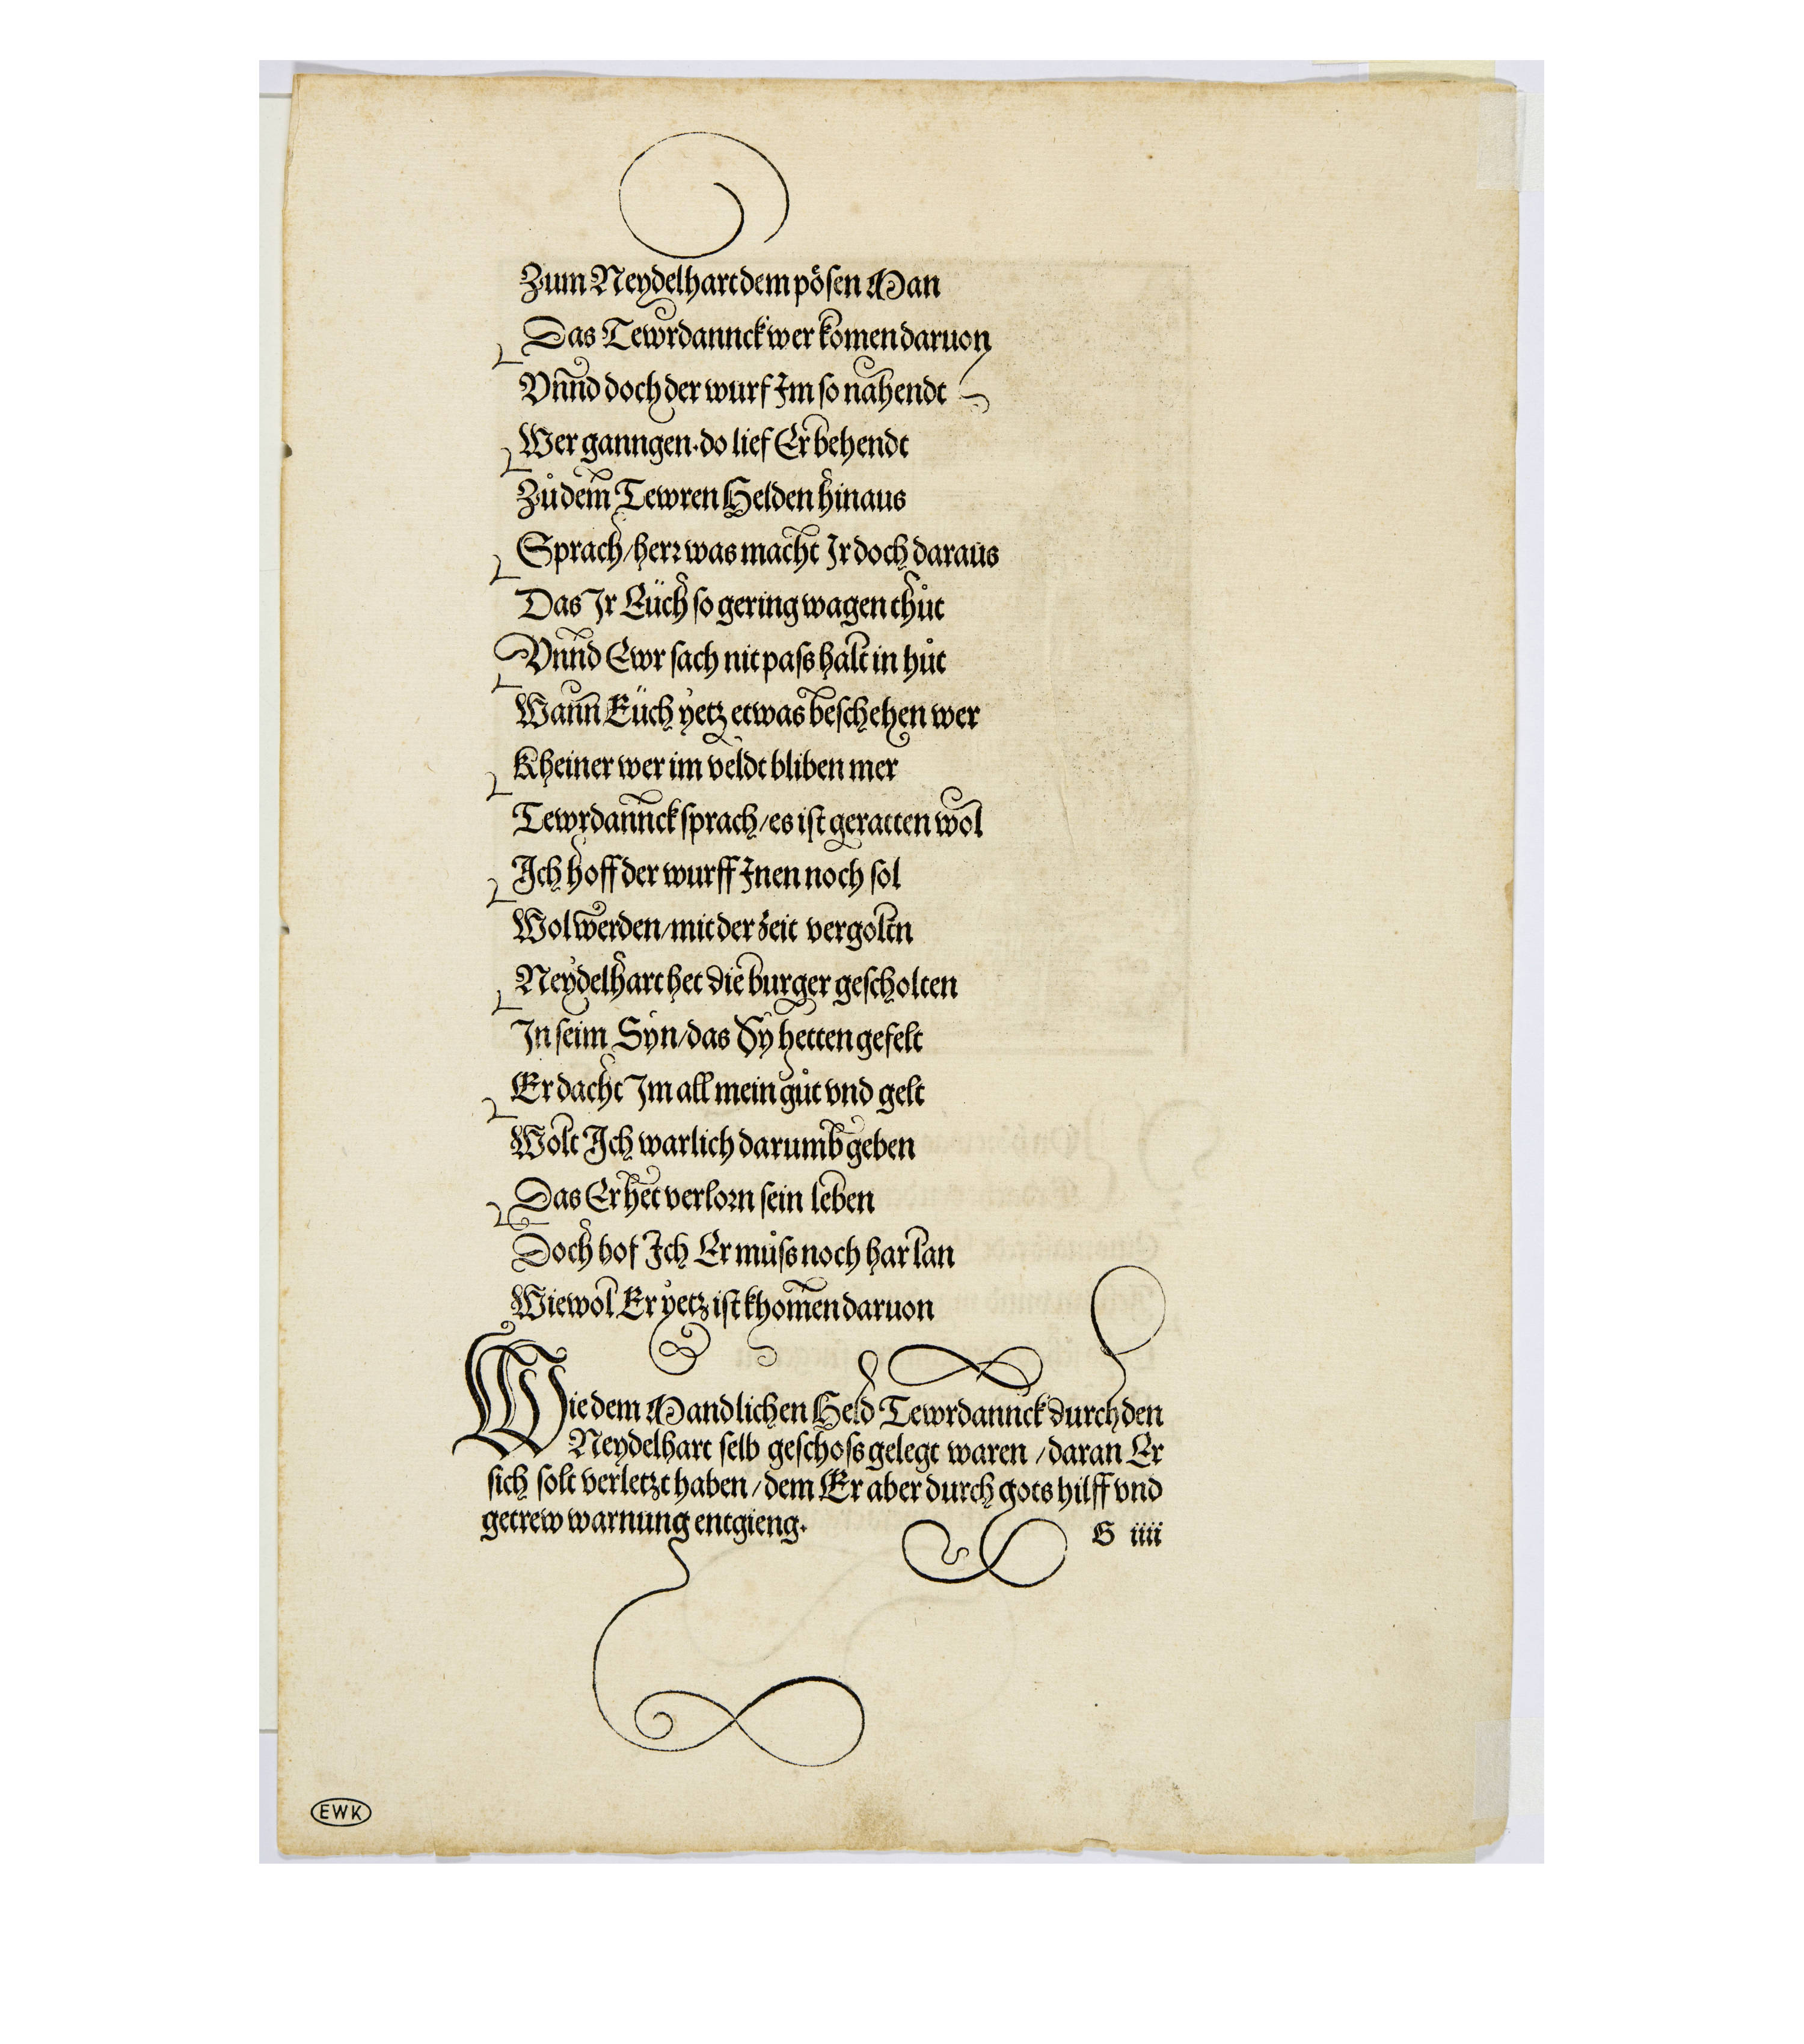 Zum Neydelhart dem pösen Man
Das Tewrdannck wer komen daruon
Vnnd doch der wurf Im so nahendt
Wer ganngen. do lief Er behendt
Zů dem Tewren Helden hinaus
Sprach / herr was macht Ir doch daraus
Das Ir Eüch so gering wagen thůt
Vnnd Ewr sach nit pass halt in hůt
Wann Eüch yetz etwas beschehen wer
Kheiner wer im veldt bliben mer
Tewrdannck sprach / es ist geratten wol
Ich hoff der wurff Inen noch sol
Wol werden / mit der zeit vergoltn
Neydelhart het die burger gescholten
In seim Syn / das Sy hetten gefelt
Er dacht Im all mein gůt vnd gelt
Wolt Ich warlich darumb geben
Das Er het verlorn sein leben
Doch hof Ich Er můss noch har lan
Wiewol Er yetz ist khomen daruon
Wie dem Mandlichen Held Tewrdannck durch den
Neydelhart selb geschoss gelegt waren / daran Er
sich solt verletzt haben / dem Er aber durch gots hilff vnd
getrew warnung entgieng.
G iiii
EWK